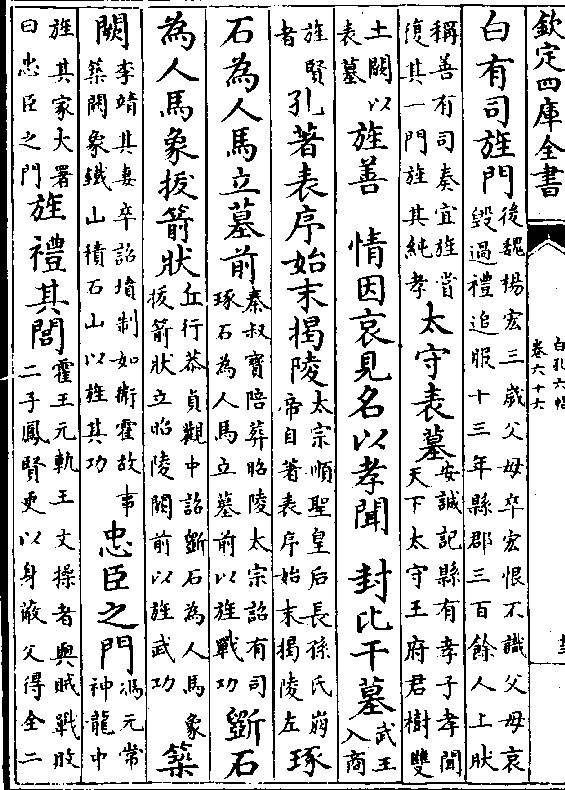 欽定四庫全書
白孔六帖
卷六十六
白有司旌門
後魏楊宏三歲父母卒宏恨不識父母哀
毀過禮追服十三年縣郡三百餘人上狀
稱善有司奏宜旌賞
復其一門旌其純孝
太守表墓
安誠記縣有孝子孝聞
天下太守王府君樹雙
土闕以
表墓
旌善 情因哀見名以孝聞 封比干墓
武王
入商
旌賢
者
孔著表序始末揭陵
太宗順聖皇后長孫氏崩
帝自著表序始末揭陵左
琢
石為人馬立墓前
秦叔寶陪葬昭陵太宗詔有司
琢石為人馬立墓前以旌戰功
斵石
為人馬象拔箭狀
丘行恭貞觀中詔斵石為人馬象
拔箭狀立昭陵闕前以旌武功
築
闕
李靖其妻卒詔墳制如衛霍故事
築闕象鐵山積石山以旌其功
忠臣之門
馮元常
神龍中
旌其家大署
曰忠臣之門
旌禮其閭
霍王元軌王文操者與賊戰敗
二子鳳賢更以身蔽父得全二